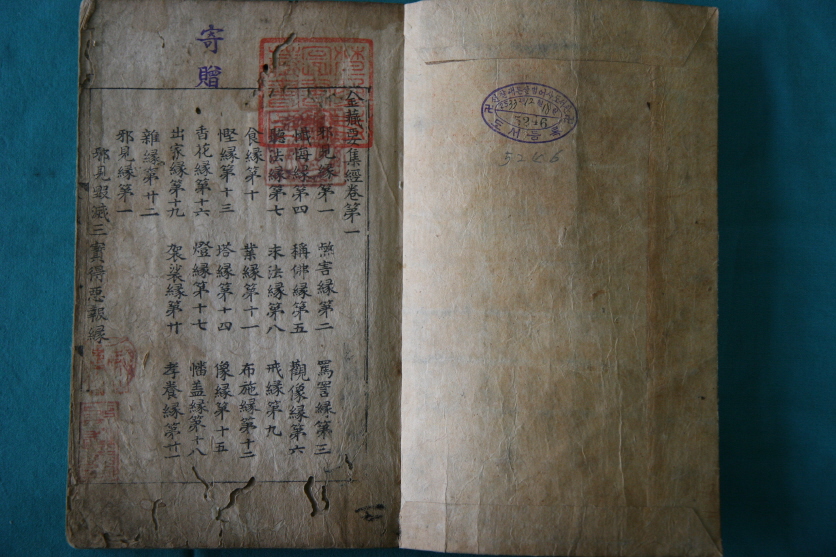 寄贈
金藏要集經卷第一
邪見緣第一 煞害緣第二 罵詈緣第三
懺悔緣第四 稱佛緣第五 觀像緣第六
聽法緣第七 求法緣第八 戒緣第九
食緣第十 業緣第十一 布施緣第十二
慳緣第十三 塔緣第十四 像緣第十五
香花緣第十六 燈緣第十七 幡盖緣第十八
出家緣第十九 袈裟緣第廿 孝養緣第廿一
雜緣第廿二
邪見緣第一
邪見毀滅三寶得惡報緣
5246